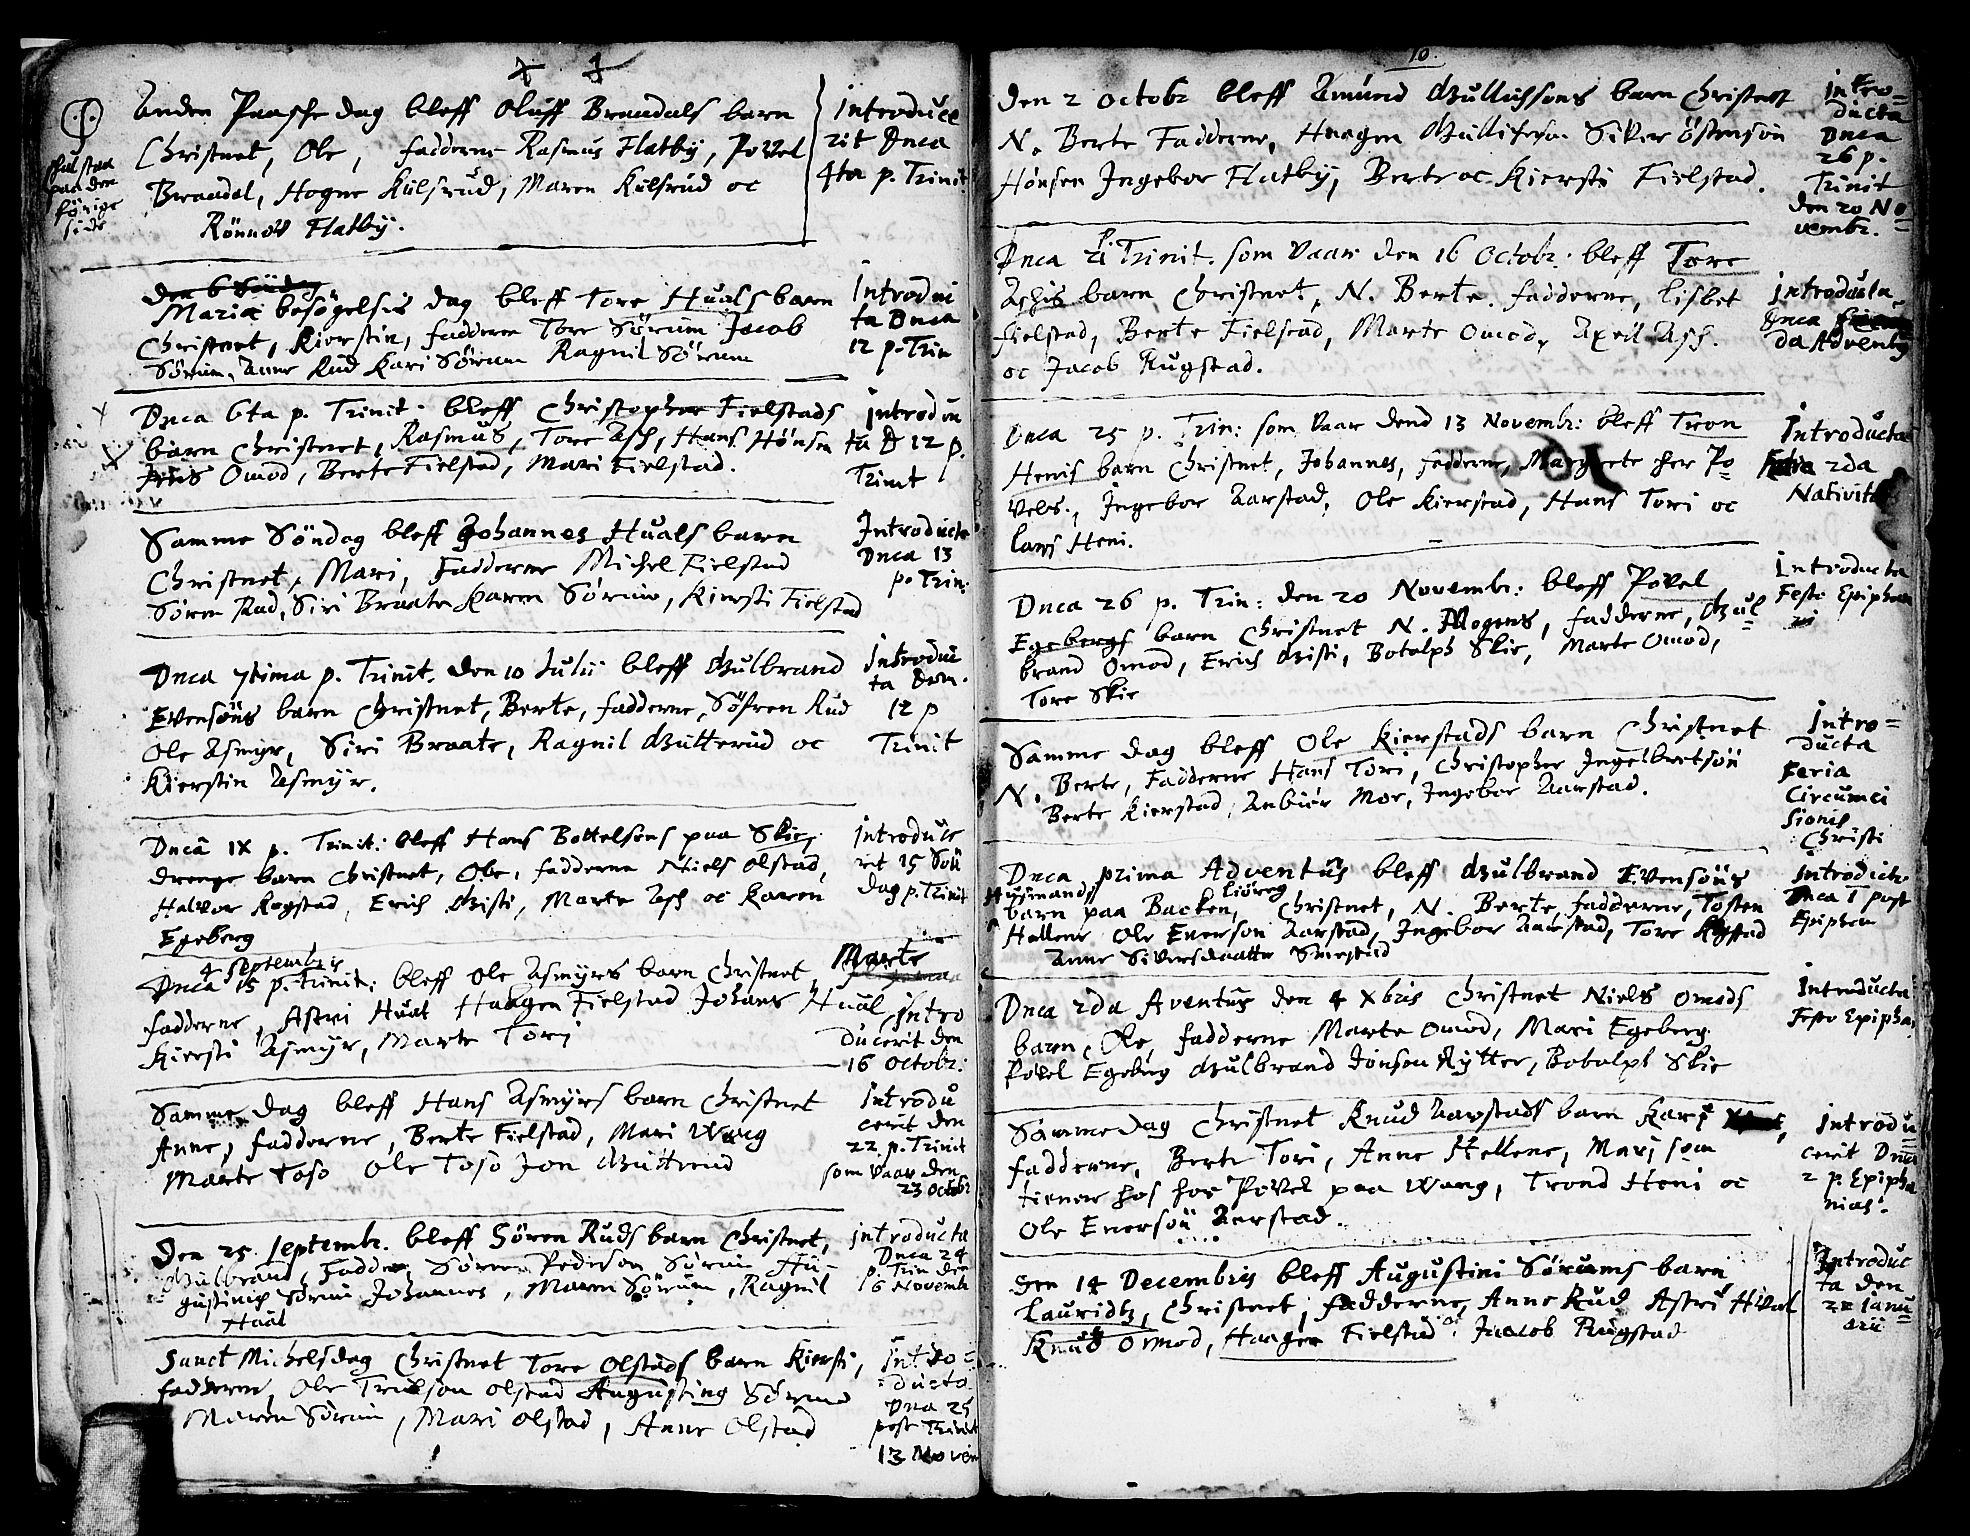 Anden Paasche dag bleff Oluff Brandals barn
Christnet, Ole, fadderne Rasmus Flatby, Povel
Brandal, Hogne Kulsrud, Maren Kulsrud oc
Rönnov Flatby.
Introduce
rit Dnca
4ta p. Trinit
skal staa
paa den
förige
side
den 6 Söndag
Mariæ besögelsis dag bleff Tore Huals barn
Christnet, Kierstin, fadderne Tore Sörum Jacob
Sörum, Anne Rud Kari Sörum Ragnil Sörum
Introdui
ta Dnca
12 p. Trin
Dnca 6ta p. Trinit. bleff Christopher Fielstads
barn Christnet, Rasmus, Tore Asch, Hans Hönsen
Omod, Berte Fielstad, Mari Fielstad.
Introdu
ta D 12 p.
Trinit
Samme Söndag bleff Johannes Huals barn
Christnet, Mari, Fadderne Michel Fielstad
Sören Rud, Siri Braate Karen Sörum, Kiersti Fielstad
Introducta
Dnca 13
p. Trin:
Dnca 7tima p. Trinit. den 10 Julii bleff Gulbrand
Evensöns barn Christnet, Berte, fadderne, Söfren Rud
Ole Asmyr, Siri Braate, Ragnil Gutterud oc
Kierstin Asmyr.
Introdui
ta Dom.
12 p
Trinit
Dnca IX p. Trinit: bleff Hans Bottelsens paa Skie,
drenge barn Christnet, Ole, fadderne Niels Olstad,
Halvor Rogstad, Erich Gisti, Marte Asch oc Karen
Egeberg
Introduce
rit 15 Sön
dag p. Trinit
4 Septembris
Dnca 15 p. Trinit: bleff Ole Asmyrs barn Christnet Marte
fadderne, Astri Hual Haagen Fielstad Johans Hual
Kiersti Asmyr, Marte Tori
Intro
ducerit den
16 Octobr:
Samme dag bleff Hans Asmyrs barn Christnet
Anne, fadderne, Berte Fielstad, Mari Wang
Marte Toso Ole Toso Jon Gutterud
Introdu
cerit den
22 p. Trinit
som vaar den
23 Octobr
Den 25 Septembr. bleff Sören Ruds barn Christnet,
Gulbrand, Fadder Sören Pederson Sörum Au-
gustinus Sörum Johannes, Maren Sörum, Ragnil
Hual
introducta
Dnca 24
p. Trin den
6 Novemb
Sanct Michelsdag Christnet Tore Olstads barn Kiersti,
fadderne, Ole Trulson Olstad Augustinus Sörum
Maren Sörum, Mari Olstad, Anne Olstad
Intro=
ducta
Dnca 25
post Trinit
13 Novem
10.
Den 2 Octobr bleff Amund Gullichsons barn Christnet
N. Berte Fadderne, Haagen Gullichson Siver Östenson
Hönsen Ingebor Flatby, Berte oc Kiersti Fielstad.
Intro=
ducta
Dnca
26 p.
Trinit
den 20 No
vembr.
Dnca 21 p Trinit. som vaar den 16 Octobr. bleff Tore
Aschis barn Christnet, N. Berte. fadderne, Lisbet
Fielstad, Berte Fielstad, Marte Omod, Axell Asch.
oc Jacob Rugstad.
Introducta
Dnca
da Adventus
Dnca 25 p. Trin: som vaar dend 13 Novembr: bleff Tron
Henis barn Christnet, Johannes, fadderne, Margrete her Po
vels., Ingebor Aarstad, Ole Kierstad, Hans Tori oc
Lars Heni.
Introducta
Feria 2da
Nativita
Dnca 26 p. Trin: den 20 Novembr: bleff Povel
Egebergs barn Christnet N. Mogens, fadderne, Gul
brand Omod, Erich Gisti, Botolph Skie, Marte Omod,
Tore Skie
Introducta
Fest: Epipha
ni
Samme dag bleff Ole Kierstads barn Christnet
N. Berte, Fadderne Hans Tori, Christopher Ingelbretsön
Berte Kierstad, Anbiör Mor, Ingebor Aarstad.
Intro=
ducta
Feria
Circumci
sionis
Christi
Dnca prima Adventus bleff Gulbrand Evensöns
Husmands barn paa Backen, Christnet, N. Berte fadderne, Tosten
Hellene Ole Enerson Aarstad, Ingebor Aarstad, Tore Rogstad
Anne Siversdaatter Smestad
Introducta
Dnca 1 post
Epiphan
Dnca 2da Aventus den 4 Xbris Christnet Niels Omods
barn, Ole, fadderne Marte Omod, Mari Egeberg
Povel Egeberg Gulbrand Jonson Rytter, Botolph Skie
Introducta
Festo Epipha.
Samme dag Christnet Knud Aarstads barn Kari
fadderne, Berte Tori, Anne Hellene, Mari som
tiener hos her Povel paa Wang, Trond Heni oc
Ole Enersön Aarstad.
Introdu
cerit Dnca
2 p. Epipha
nias.
Den 14 Decembris bleff Augustini Sörums barn
Lauridtz, Christnet, fadderne, Anne Rud Astri Hual
Knud Ormod, Haagen Fielstad oc Jacob Rugstad
Introduc
ta den
22 Janu
arii